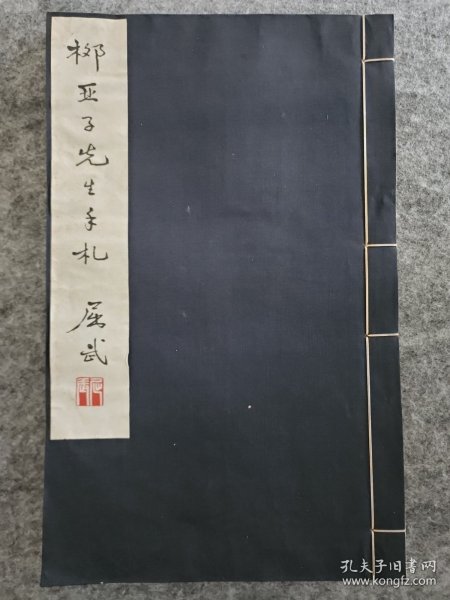 柳亚子先生手札
屈武
孔夫子旧书网
www.kongfz.com